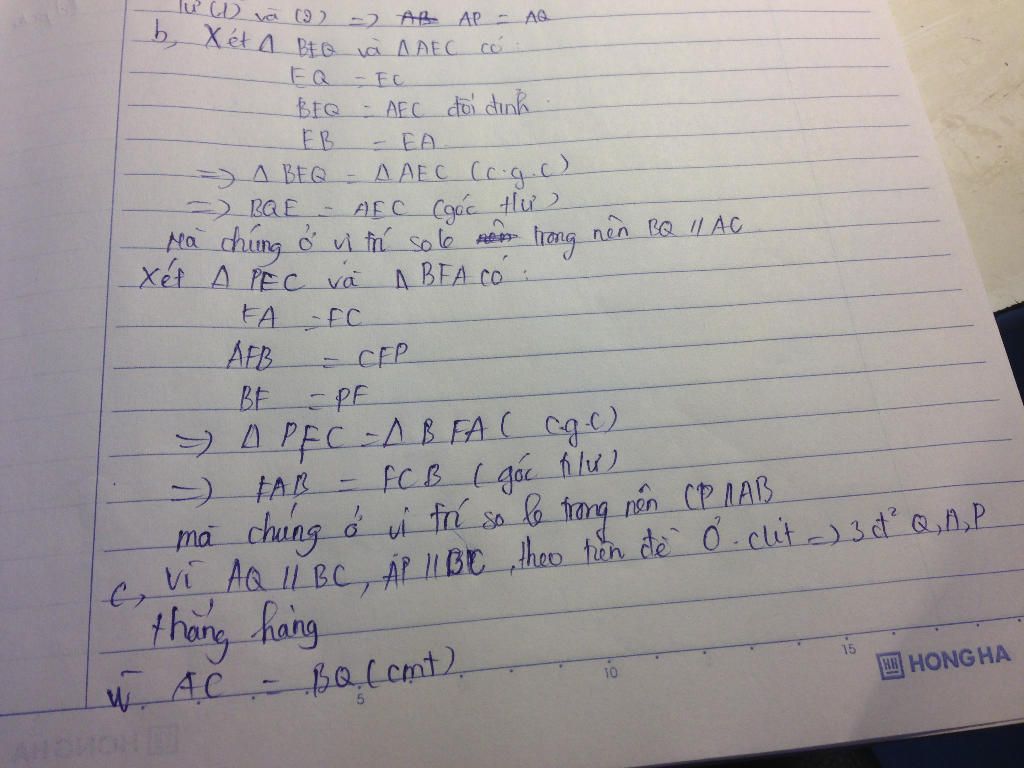 Từ (1) và (2) => AP = AQ
b, Xét Δ BEQ và Δ AEC có:
EQ = EC
BEQ = AEC đối đỉnh
EB = EA
=> Δ BEQ = Δ AEC (c.g.c)
=> BQE = AEC (góc t/ư)
Mà chúng ở vị trí so le trong nên BQ // AC
Xét Δ PFC và Δ BFA có:
FA = FC
AFB = CFP
BF = PF
=> Δ PFC = Δ BFA (c.g.c)
=> FAB = FCB (góc t/ư)
mà chúng ở vị trí so le trong nên CP // AB
c, Vì AQ // BC, AP // BC, theo tiên đề Ơ-clit => 3 đ² Q, A, P
thẳng hàng
Vì AC = BQ (cmt)
5 10 15
HONG HA